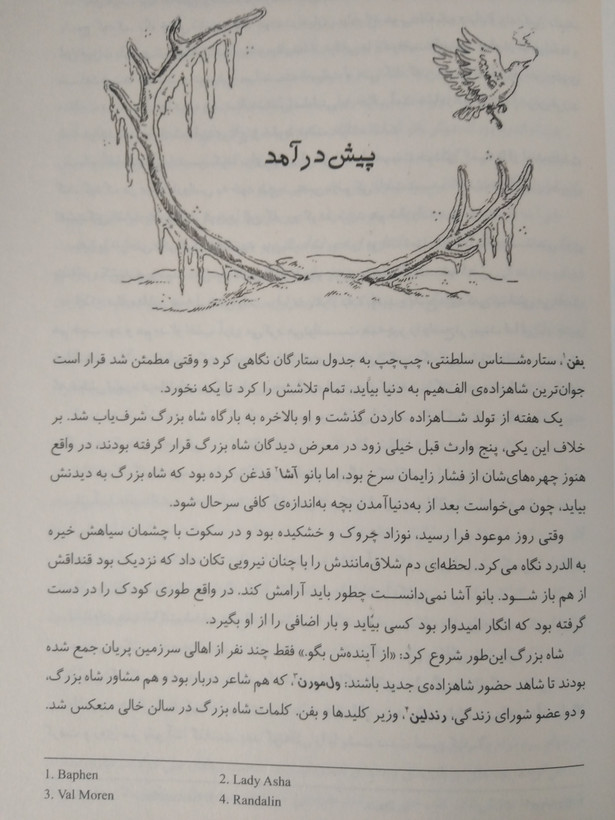 پیش درآمد
بفن۱، ستاره‌شناس سلطنتی، چپ‌چپ به جدول ستارگان نگاهی کرد و وقتی مطمئن شد قرار است
جوان‌ترین شاهزاده‌ی الف‌هیم به دنیا بیاید، تمام تلاشش را کرد تا یکه نخورد.
یک هفته از تولد شاهزاده کاردن گذشت و او بالاخره به بارگاه شاه بزرگ شرف‌یاب شد. بر
خلاف این یکی، پنج وارث قبل خیلی زود در معرض دیدگان شاه بزرگ قرار گرفته بودند، در واقع
هنوز چهره‌های‌شان از فشار زایمان سرخ بود، اما بانو آشا۲ قدغن کرده بود که شاه بزرگ به دیدنش
بیاید، چون می‌خواست بعد از به‌دنیاآمدن بچه به‌اندازه‌ی کافی سرحال شود.
وقتی روز موعود فرا رسید، نوزاد چروک و خشکیده بود و در سکوت با چشمان سیاهش خیره
به الدرد نگاه می‌کرد. لحظه‌ای دم شلاق‌مانندش را با چنان نیرویی تکان داد که نزدیک بود قنداقش
از هم باز شود. بانو آشا نمی‌دانست چطور باید آرامش کند. در واقع طوری کودک را در دست
گرفته بود که انگار امیدوار بود کسی بیاید و بار اضافی را از او بگیرد.
شاه بزرگ این‌طور شروع کرد: «از آینده‌ش بگو.» فقط چند نفر از اهالی سرزمین پریان جمع شده
بودند تا شاهد حضور شاهزاده‌ی جدید باشند: ول‌مورن۳، که هم شاعر دربار بود و هم مشاور شاه بزرگ،
و دو عضو شورای زندگی، رندلین۴، وزیر کلیدها و بفن. کلمات شاه بزرگ در سالن خالی منعکس شد.
1. Baphen 2. Lady Asha
3. Val Moren 4. Randalin